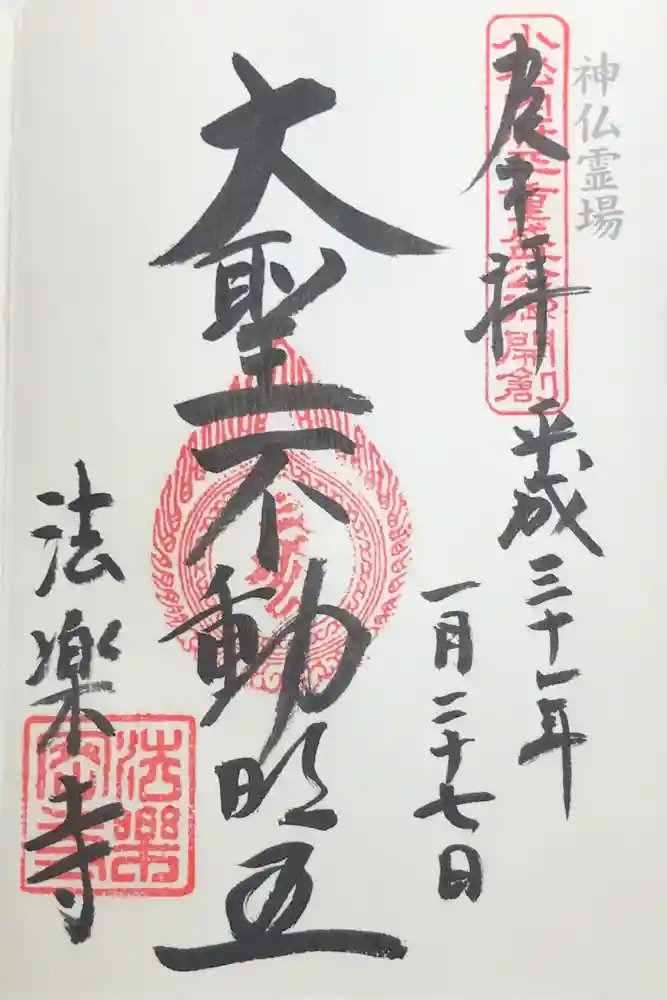 神仏霊場
奉拝
小松内府平重盛公御開創
平成三十一年
一月二十七日
大聖不動明王
法楽寺